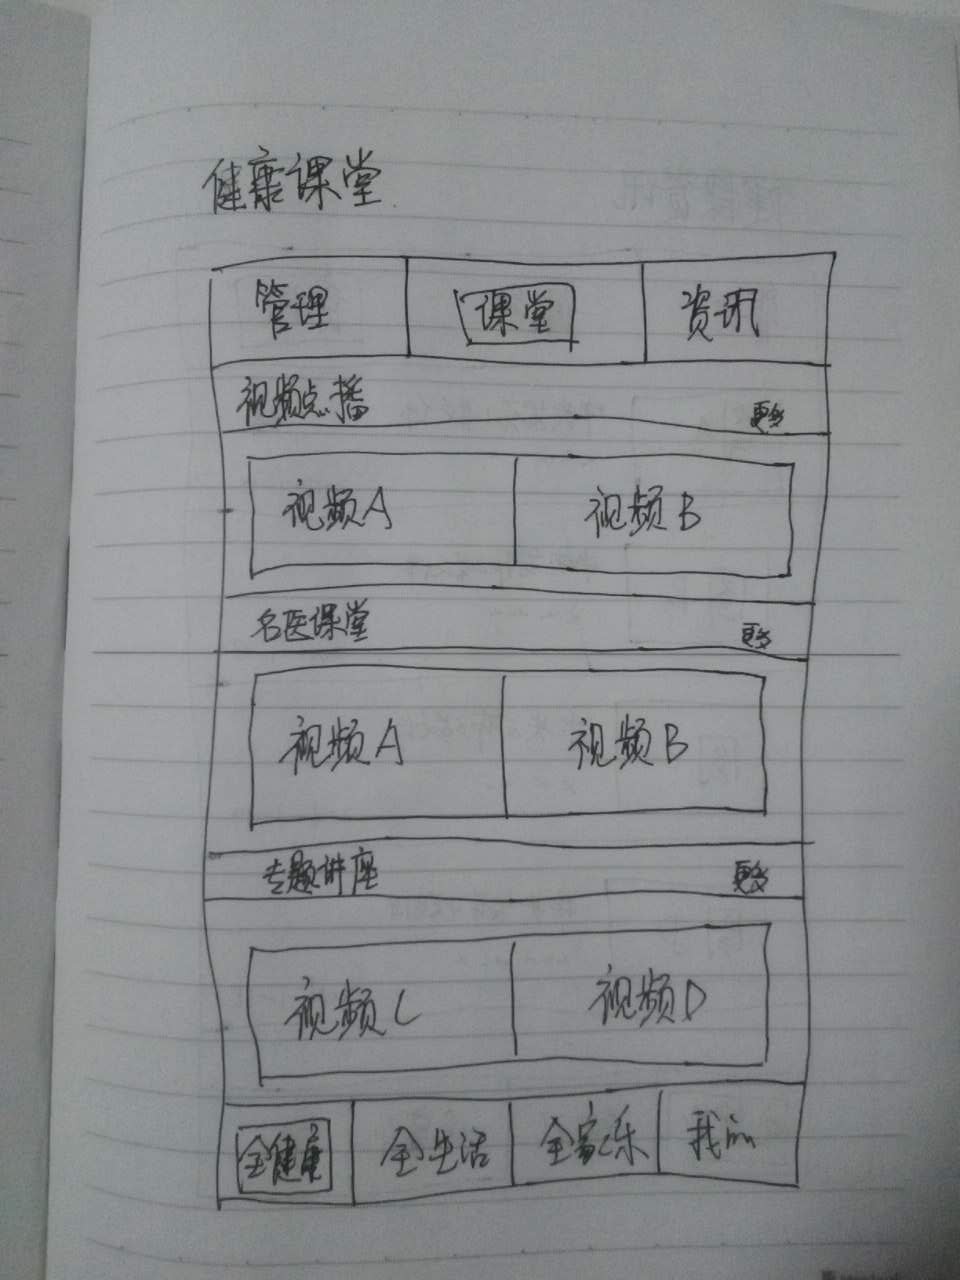 健康课堂
管理 课堂 资讯
视频点播 更多
视频A 视频B
名医课堂 更多
视频A 视频B
专题讲座 更多
视频C 视频D
全健康 全生活 全家乐 我的